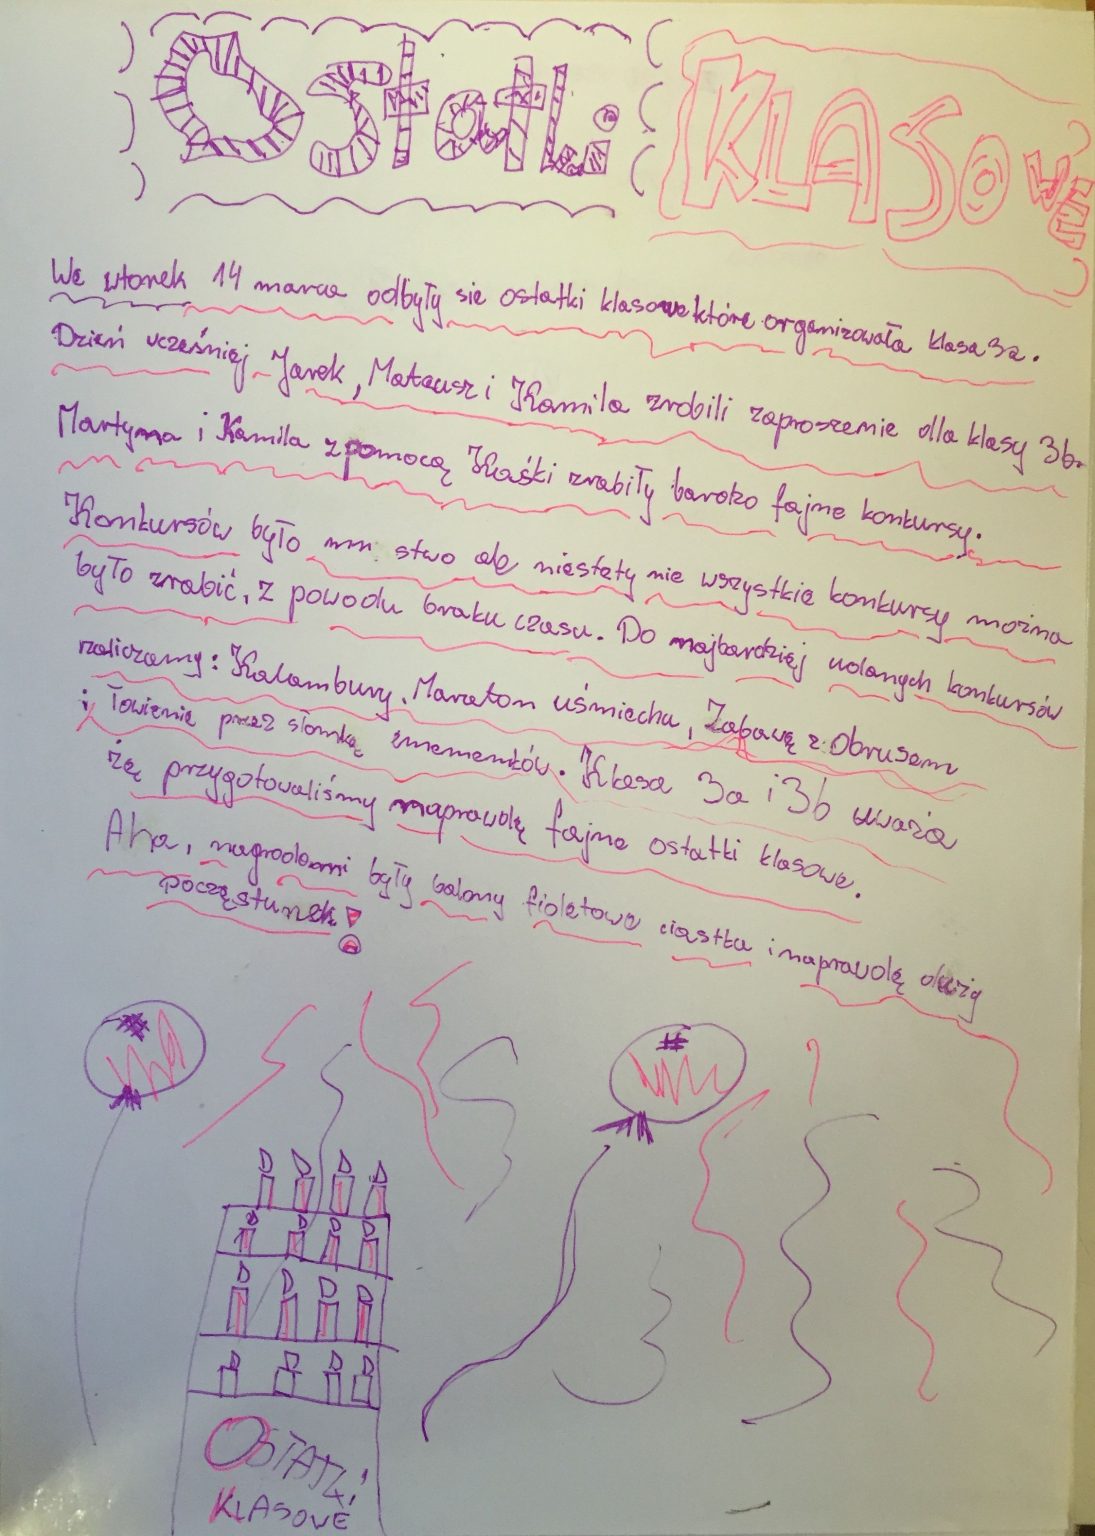 Ostatki KLASOWE
We wtorek 14 marca odbyły sie ostatki klasowe które organizowała klasa 3a.
Dzień wcześniej Jarek, Mateusz i Kamila zrobili zaproszenie dla klasy 3b.
Martyna i Kamila z pomocą Kaśki zrabiły bardzo fajne konkursy.
Konkursów było mnustwo ale niestety nie wszystkie konkursy można
było zrabić, z powodu braku czasu. Do najbardziej udanych konkursów
zaliczamy: Kalambury, Maraton uśmiechu, Zabawę z Obrusem
i łowienie przez słomkę emementów. Klasa 3a i 3b uważa
żę przygotowaliśmy naprawdę fajne ostatki klasowe.
Aha, nagrodami były balony fioletowe ciastka i naprawdę duży
poczęstunek!
OSTATKI
KLASOWE